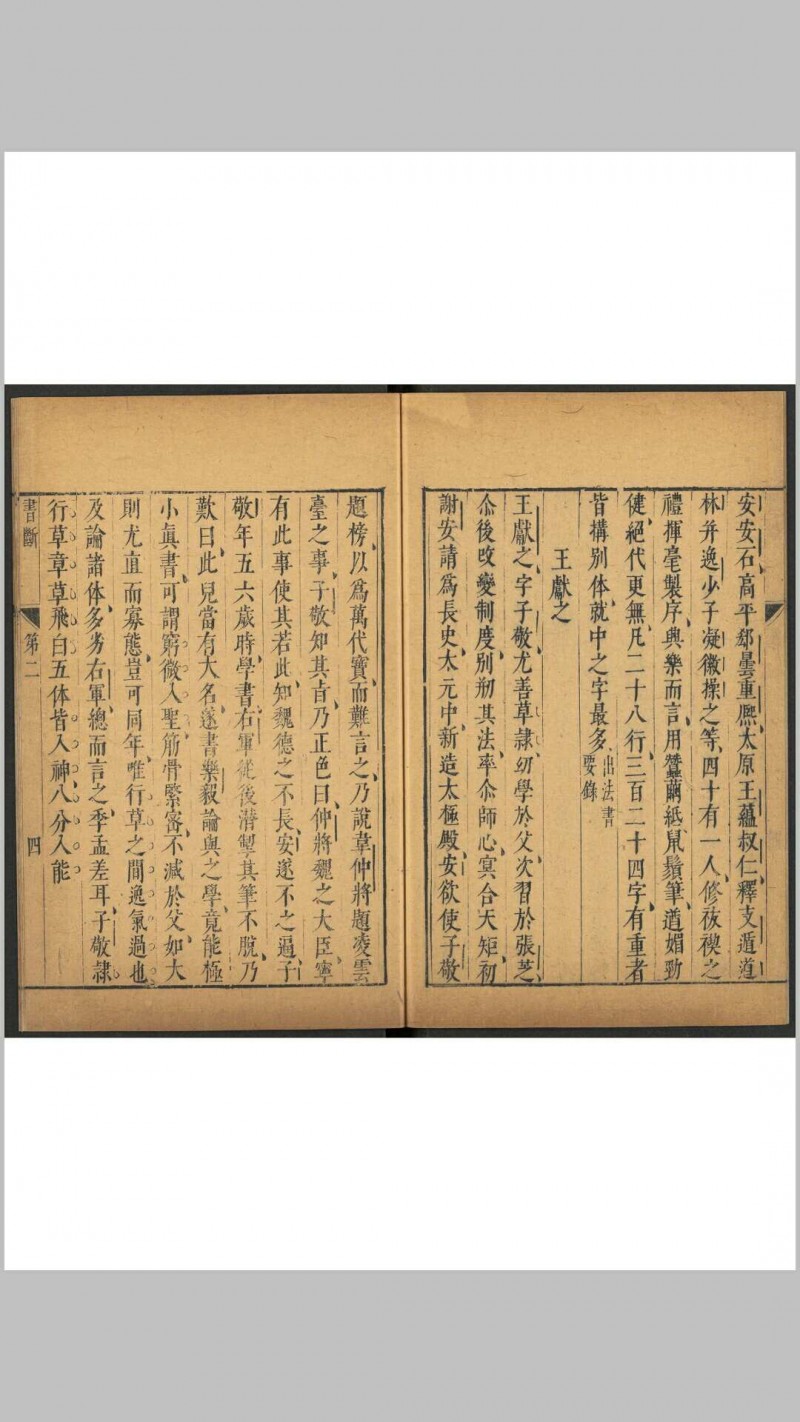 安安石高平郄曇重熈太原王蘊叔仁釋支遁道
林并逸少子凝徽操之等四十有一人修祓禊之
禮揮毫製序興樂而言用蠶繭紙鼠鬚筆遒媚勁
健絕代更無凡二十八行三百二十四字有重者
皆搆别体就中之字最多出法書
要錄
王獻之
王獻之字子敬尤善草隸幼學於父次習於張芝
尒後改變制度别刱其法率尒師心冥合天矩初
謝安請為長史太元中新造太極殿安欲使子敬
題榜以為萬代寳而難言之乃說韋仲將題凌雲
臺之事子敬知其旨乃正色曰仲將魏之大臣寧
有此事使其若此知魏德之不長安遂不之逼子
敬年五六歲時學書右軍從後潛掣其筆不脫乃
歎曰此兒當有大名遂書樂毅論與之學竟能極
小真書可謂窮微入聖筋骨緊密不減於父如大
則尤直而寡態豈可同年唯行草之間逸氣過也
及論諸体多劣右軍總而言之季孟差耳子敬隸
行草章草飛白五体皆入神八分入能
書斷
第二
四